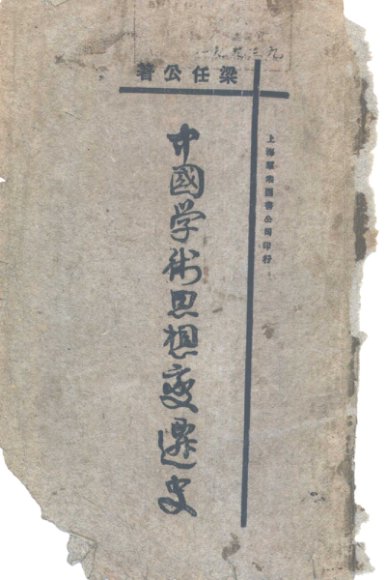 梁任公著
中國学術思想變遷史
上海羣衆圖書公司印行